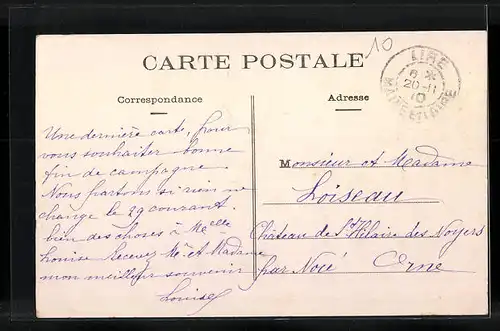 10
CARTE POSTALE
LIMÉ
6 *
20-11
10
MAINE ET LOIRE
Correspondance
Adresse
Une dernière carte, pour
vous souhaiter bonne
fin de campagne
Nous partons si rien ne
change le 29 courant.
bien des choses à Melle
Louise Recevez Mr et Madame
mon meilleur souvenir
Louise
Monsieur et Madame
Loiseau
Château de St Hilaire des Noyers
par Nocé Orne